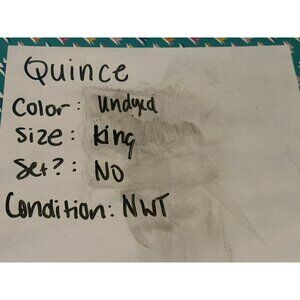 Quince
Color: undyed
Size: King
Set?: No
Condition: NWT